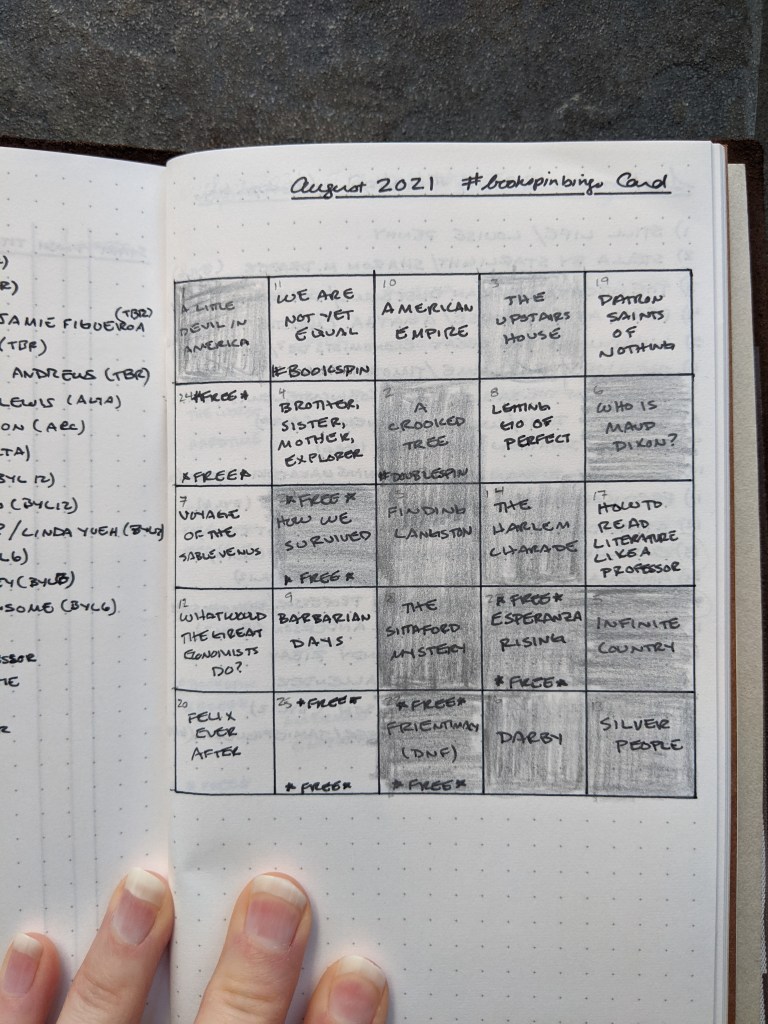 August 2021 #bookspinbingo Card
1
A LITTLE
DEVIL IN
AMERICA
11
WE ARE
NOT YET
EQUAL
#BOOKSPIN
10
AMERICAN
EMPIRE
3
THE
UPSTAIRS
HOUSE
19
PATRON
SAINTS
OF
NOTHING
24 *FREE*
*FREE*
4
BROTHER,
SISTER,
MOTHER,
EXPLORER
2
A
CROOKED
TREE
#DOUBLESPIN
8
LETTING
GO OF
PERFECT
6
WHO IS
MAUD
DIXON?
7
VOYAGE
OF THE
SABLE VENUS
*FREE*
HOW WE
SURVIVED
*FREE*
FINDING
LANGSTON
14
THE
HARLEM
CHARADE
17
HOW TO
READ
LITERATURE
LIKE A
PROFESSOR
12
WHAT WOULD
THE GREAT
ECONOMISTS
DO?
9
BARBARIAN
DAYS
THE
SITTAFORD
MYSTERY
*FREE*
ESPERANZA
RISING
*FREE*
5
INFINITE
COUNTRY
20
FELIX
EVER
AFTER
25 *FREE*
*FREE*
*FREE*
FRIENTIMACY
(DNF)
*FREE*
DARBY
SILVER
PEOPLE
(TBR)
JAMIE FIGUEROA
(TBR)
ANDREWS (TBR)
LEWIS (ALTA)
ON (ARC)
TA)
BYL 12)
(BYL12)
? / LINDA YUEH
L6)
TY (BYL8)
OSOME (BYL6)
ESSOR
ME
R